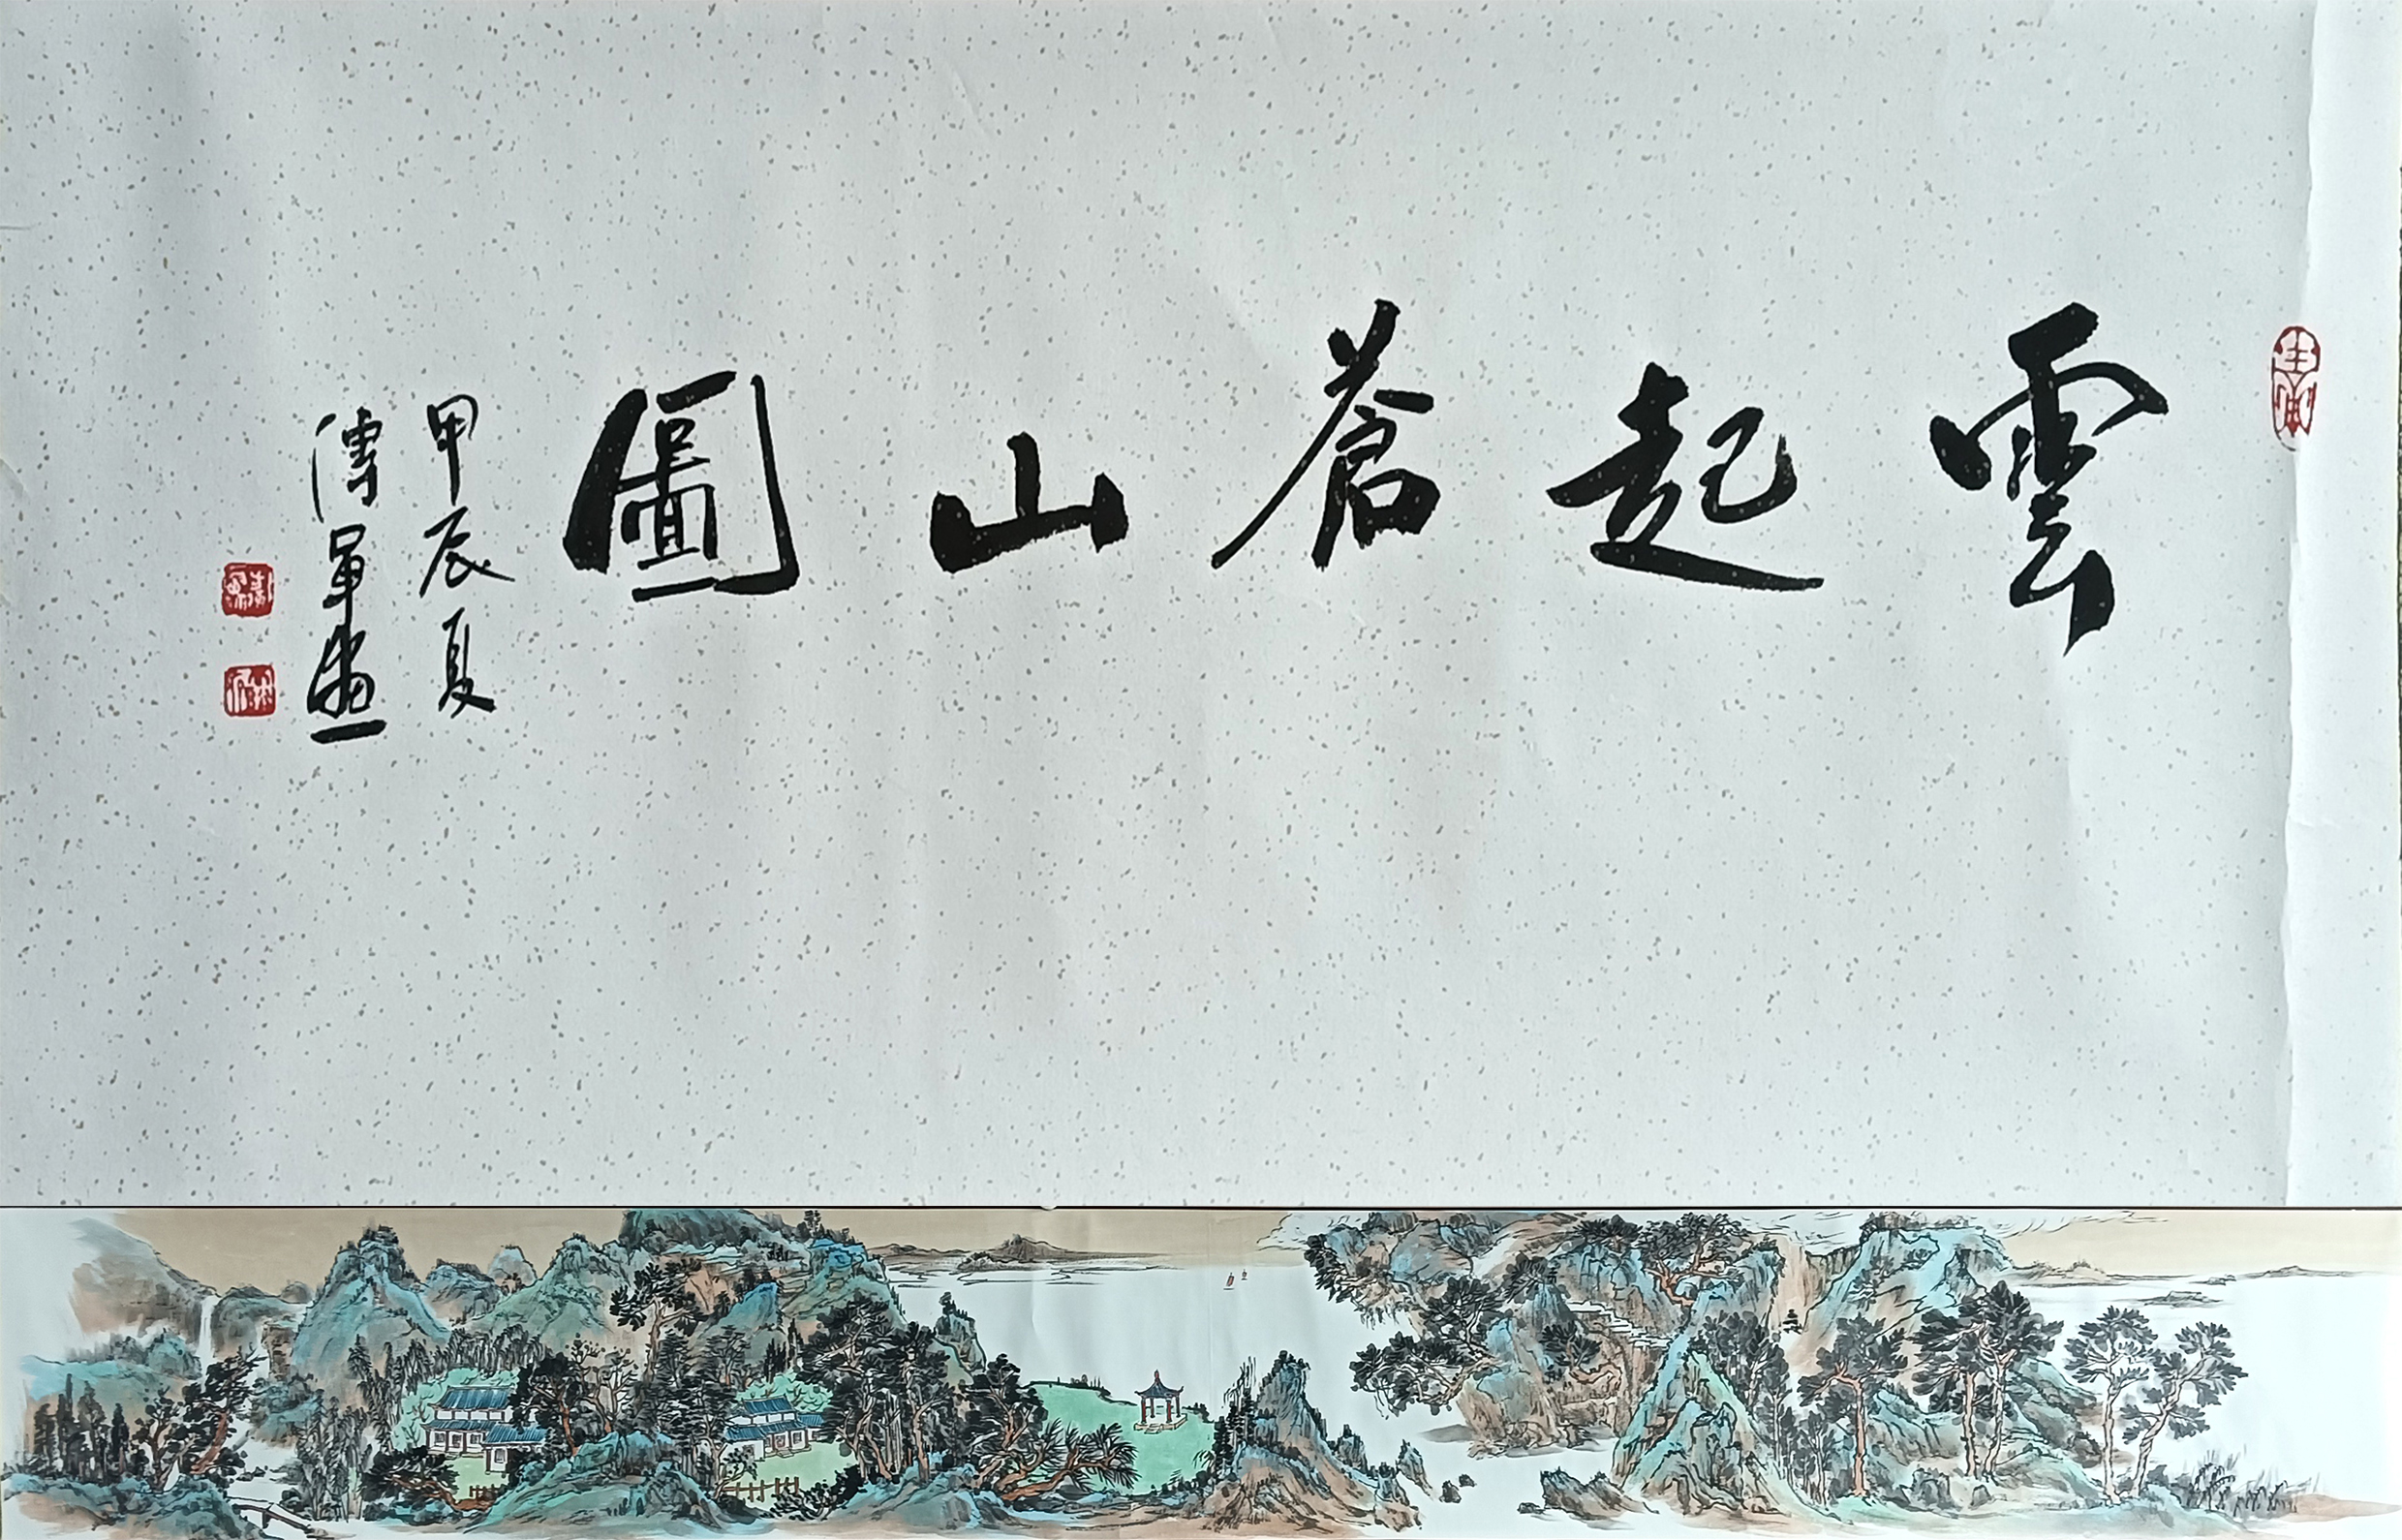 雲起蒼山圖
甲辰夏
傳軍畫